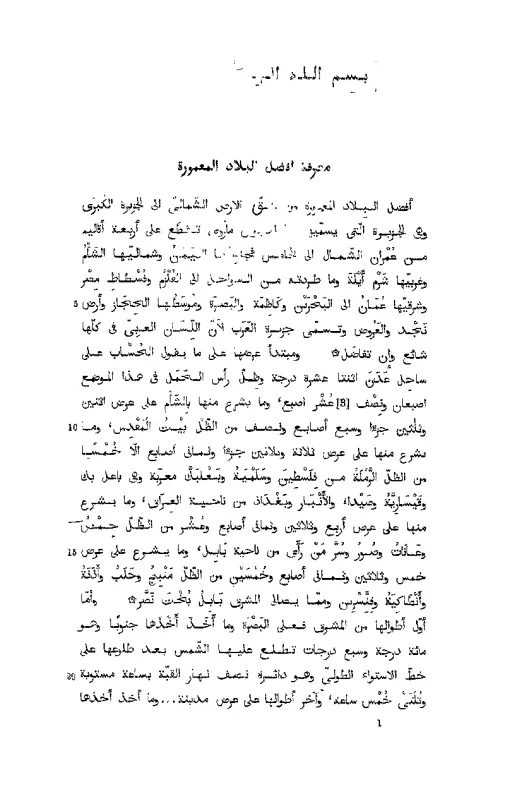 بسم الله الر
معرفة افضل البلاد المعمورة
أفضل البلاد المعمورة من شقّ الارض الشمالىّ الى الجزيرة الكبرى
وهى الجزيرة التى يسمّيها بطليموس ماروى تقطع على أربعة أقاليم
من عمران الشمال الى الخامس فجانبها اليمن وشماليها الشأم
وغربيها شرم أيلة وما طردته من السواحل الى القلزم وفسطاط مصر
وشرقيها عمان الى البحرين وكاظمة والبصرة وموسطها الحجاز وأرض 5
نجد والعروض وتسمى جزيرة العرب لأنّ اللسان العربىّ فى كلّها
شائع وإن تفاضل ومبتدأ عرضها على ما يقول الحسّاب على
ساحل عدن اثنتا عشرة درجة وظلّ رأس الحمل فى هذا الموضع
اصبعان ونصف [8] عُشْر اصبع، وما يشرع منها بالشأم على عرض اثنين
وثلثين جزءا وسبع أصابع ونصف من الظلّ بيت المقدس، وما 10
يشرع منها على عرض ثلاثة وثلاثين جزءا وثمانى أصابع الّا خُمْسا
من الظلّ الرملة من فلسطين وسلمية وبعلبك معربة وهى باعل بك
وقيسارية وصيداء والأنبار وبغداذ من ناحية العراق، وما يشرع
منها على عرض أربع وثلاثين وثمانى أصابع وعُشْر من الظلّ حمص
وعانات وصور وسرّ من رأى من ناحية بابل، وما يشرع على عرض 15
خمس وثلاثين وثمانى أصابع وخُمْسين من الظلّ منبج وحلب وأذنة
وأنطاكية وقنّسرين وممّا يصالى المشرق بابل بخت نصّر وأمّا
أوّل أطوالها من المشرق فعلى البصرة وما أخذ أخذها جنوبا وهو
مائة درجة وسبع درجات تطلع عليها الشمس بعد طلوعها على
خطّ الاستواء الطولىّ وهو دائرة نصف نهار القبّة بساعة مستوية 20
وثُلثَى خُمْس ساعة، وآخر أطوالها على عرض مدينة ... وما أخذ أخذها
1